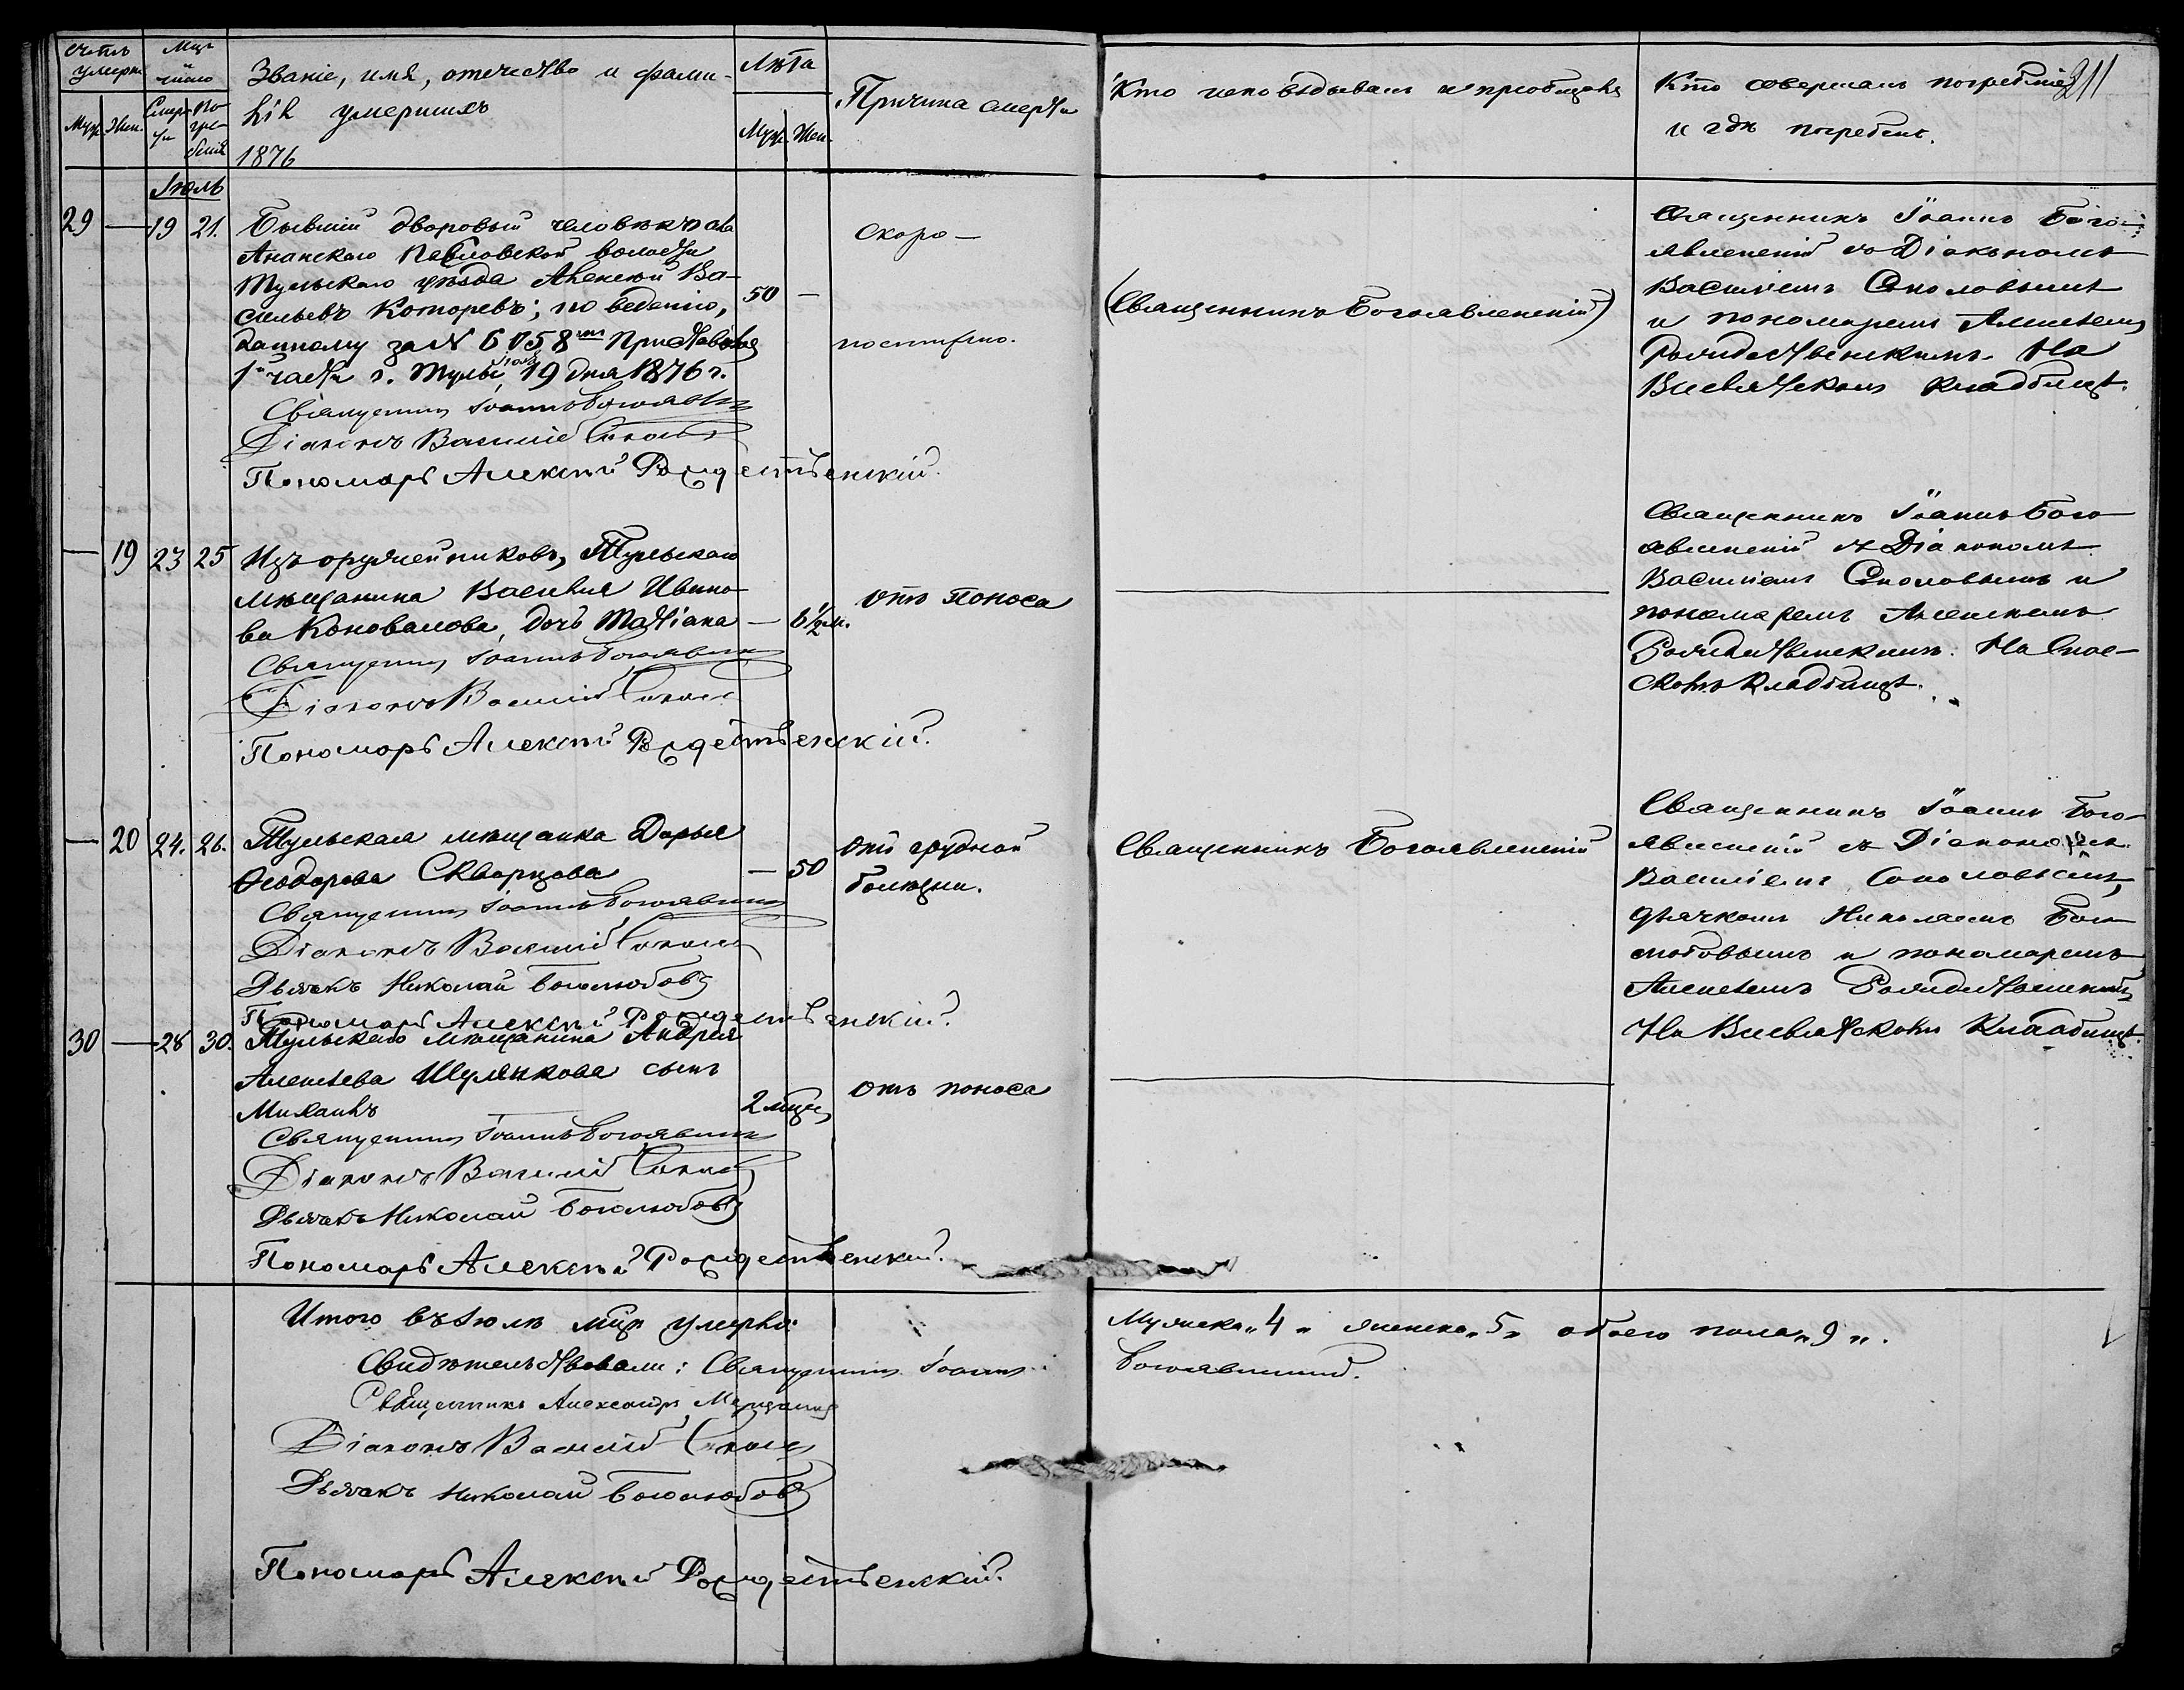 Счетъ умерш.
Мцъ и число
Званіе, имя, отечество и фами-
лія умершихъ
1876
Лѣта
Причина смерти
Кто исповѣдывалъ и пріобщалъ
Кто совершалъ погребеніе
и гдѣ погребенъ.
211
Муж. Жен. Смерти Погребенія
Муж. Жен.
Іюль
29 — 19 21.
Бывшій дворовый человѣкъ
Павловской волости
Тульскаго уѣзда Алексѣй Ва-
сильевъ Которевъ; по веденію,
данному за № 6758мъ Пристава
1й части г. Тулы, іюля 19 дня 1876 г.
50 —
Скоро-
постижно.
(Священникъ Богоявленскій)
Священникъ Іоаннъ Бого-
явленскій съ Діакономъ
Василіемъ Соколовымъ
и пономаремъ Алексѣемъ
Рождественскимъ. На
Всесвятскомъ кладбищѣ.
Священникъ Іоаннъ Богоявленскій
Діаконъ Василій Соколовъ
Пономарь Алексѣй Рождественскій.
— 19 23 25
Изъ оружейниковъ, Тульскаго
мѣщанина Василія Ивано-
ва Коновалова, дочь Татіана
— 6½ м.
Отъ поноса
Священникъ Іоаннъ Бого-
явленскій съ Діакономъ
Василіемъ Соколовымъ и
пономаремъ Алексѣемъ
Рождественскимъ. На Спас-
скомъ кладбищѣ.
Священникъ Іоаннъ Богоявленскій
Діаконъ Василій Соколовъ
Пономарь Алексѣй Рождественскій.
— 20 24. 26.
Тульская мѣщанка Дарья
Ѳеодорова Скворцова
— 50
Отъ грудной
болѣзни.
Священникъ Богоявленскій
Священникъ Іоаннъ Бого-
явленскій съ Діакономъ
Василіемъ Соколовымъ,
дьячкомъ Николаемъ Бого-
любовымъ и пономаремъ
Алексѣемъ Рождественскимъ
На Всесвятскомъ Кладбищѣ.
Священникъ Іоаннъ Богоявленскій
Діаконъ Василій Соколовъ
Дьячекъ Николай Боголюбовъ
Пономарь Алексѣй Рождественскій.
30 — 28 30.
Тульскаго мѣщанина Андрея
Алексѣева Шулякова сынъ
Михаилъ
2 мѣсяц.
Отъ поноса
Священникъ Іоаннъ Богоявленскій
Діаконъ Василій Соколовъ
Дьячекъ Николай Боголюбовъ
Пономарь Алексѣй Рождественскій.
Итого въ Іюлѣ мцѣ умерло:
Мужска „4„ женска „5„ обоего пола „9„.
Свидѣтельствовали: Священникъ Іоаннъ
Богоявленскій.
Священникъ Александръ
Діаконъ Василій Соколовъ
Дьячекъ Николай Боголюбовъ
Пономарь Алексѣй Рождественскій.